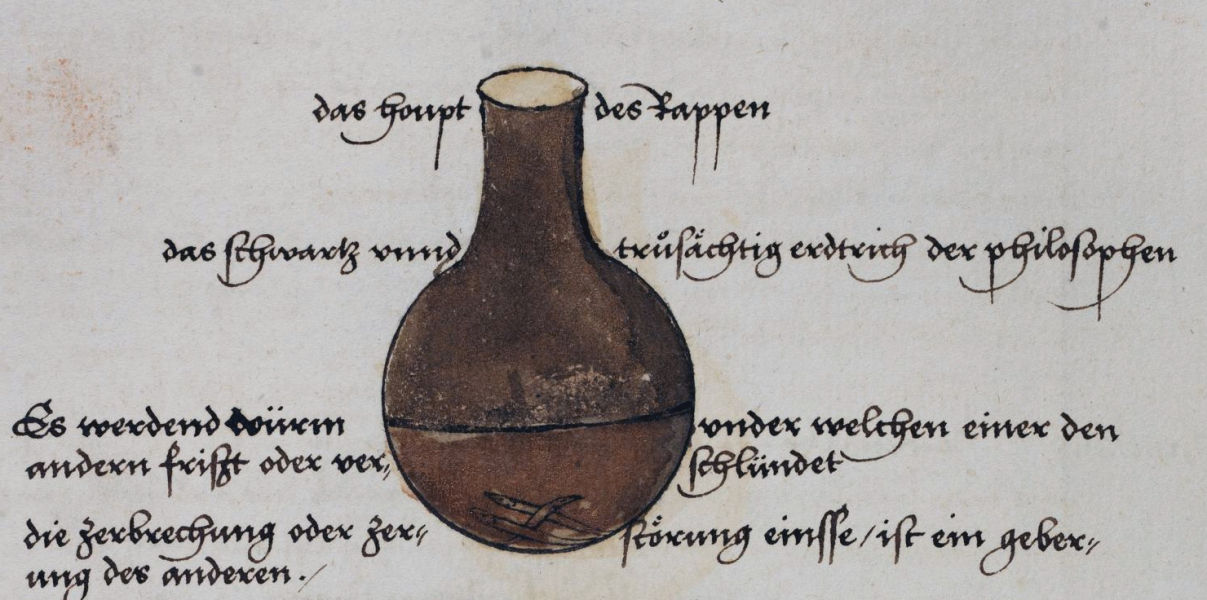 das houpt des Rappen
das schwartz vnnd trůsächtig erdtrich der philosophen
Es werdend würm vnder welchen einer den
andern friszt oder ver- schlündet
die zerbrechung oder zer- störung einsse / ist ein geber-
ung des anderen ./